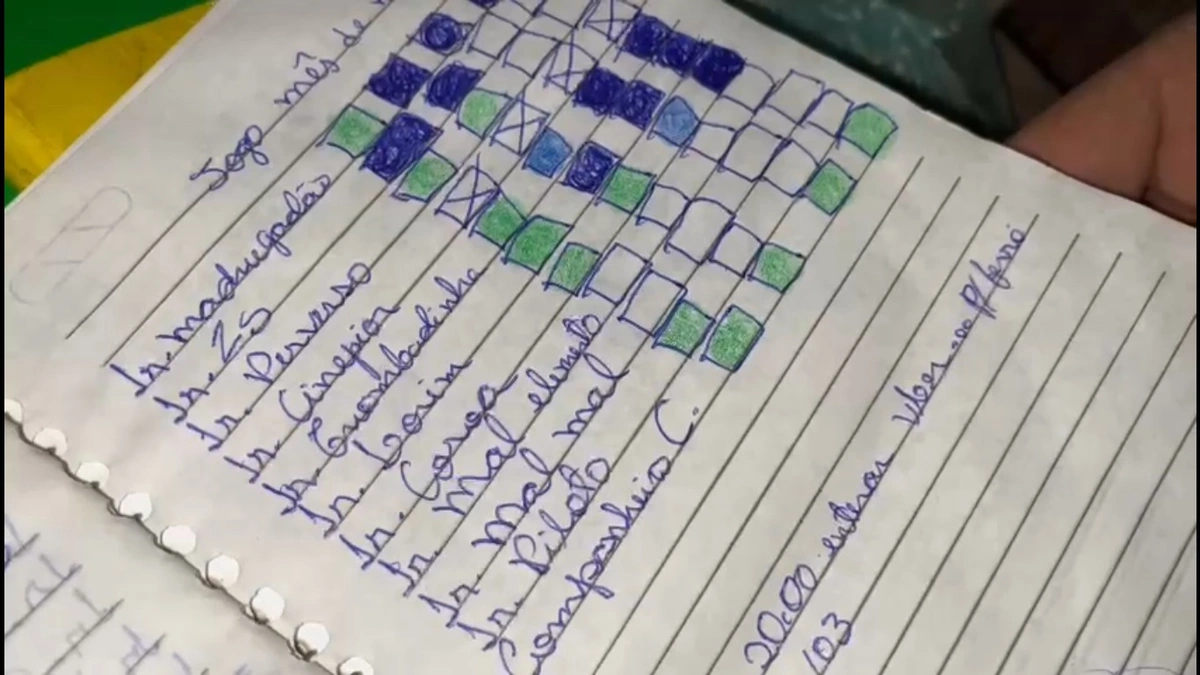 Jogo mês de
Ir. madrugadão
Ir. ZS
Ir. Perverso
Ir. Cinepion
Ir. Trombadinha
Ir. Lorim
Ir. Coroa
Ir. Mal elemento
Ir. Mal mal
Ir. Piloto
Companheiro C.
20:00 entrar
103